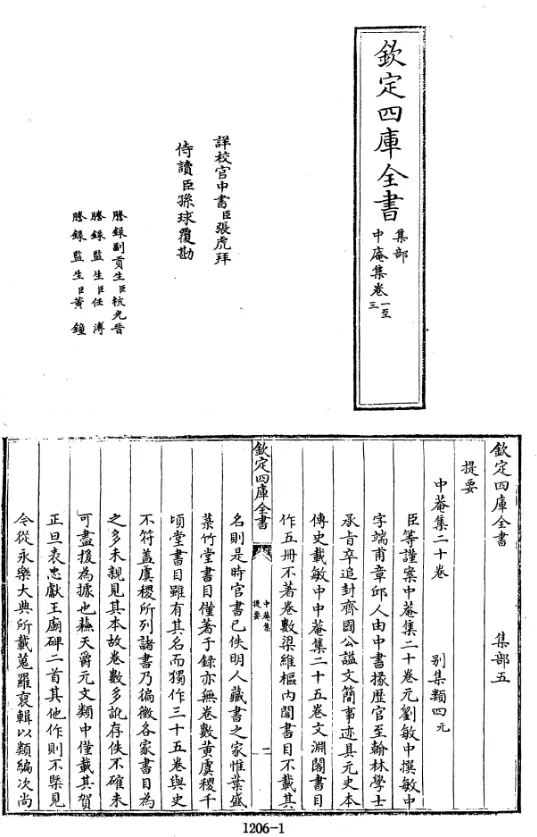 欽定四庫全書
集部
中庵集卷一至三
詳校官中書臣張虎拜
侍讀臣孫球覆勘
謄錄副貢生臣杭光晉
謄錄監生臣任溥
謄錄監生臣黃鐘
欽定四庫全書 集部五
提要
中菴集二十卷 別集類四元
臣等謹案中菴集二十卷元劉敏中撰敏中
字端甫章邱人由中書掾歷官至翰林學士
承旨卒追封齊國公諡文簡事迹具元史本
傳史載敏中中菴集二十五卷文淵閣書目
作五冊不著卷數梁維樞內閣書目不載其
欽定四庫全書
中菴集
提要
一
名則是時官書已佚明人藏書之家惟葉盛
菉竹堂書目僅著于錄亦無卷數黃虞稷千
頃堂書目雖有其名而獨作三十五卷與史
不符蓋虞稷所列諸書乃徧徵各家書目為
之多未親見其本故卷數多訛存佚不確未
可盡援為據也蘇天爵元文類中僅載其賀
正旦表忠獻王廟碑二首其他作則不槩見
今從永樂大典所載蒐羅裒輯以類編次尚
1206-1